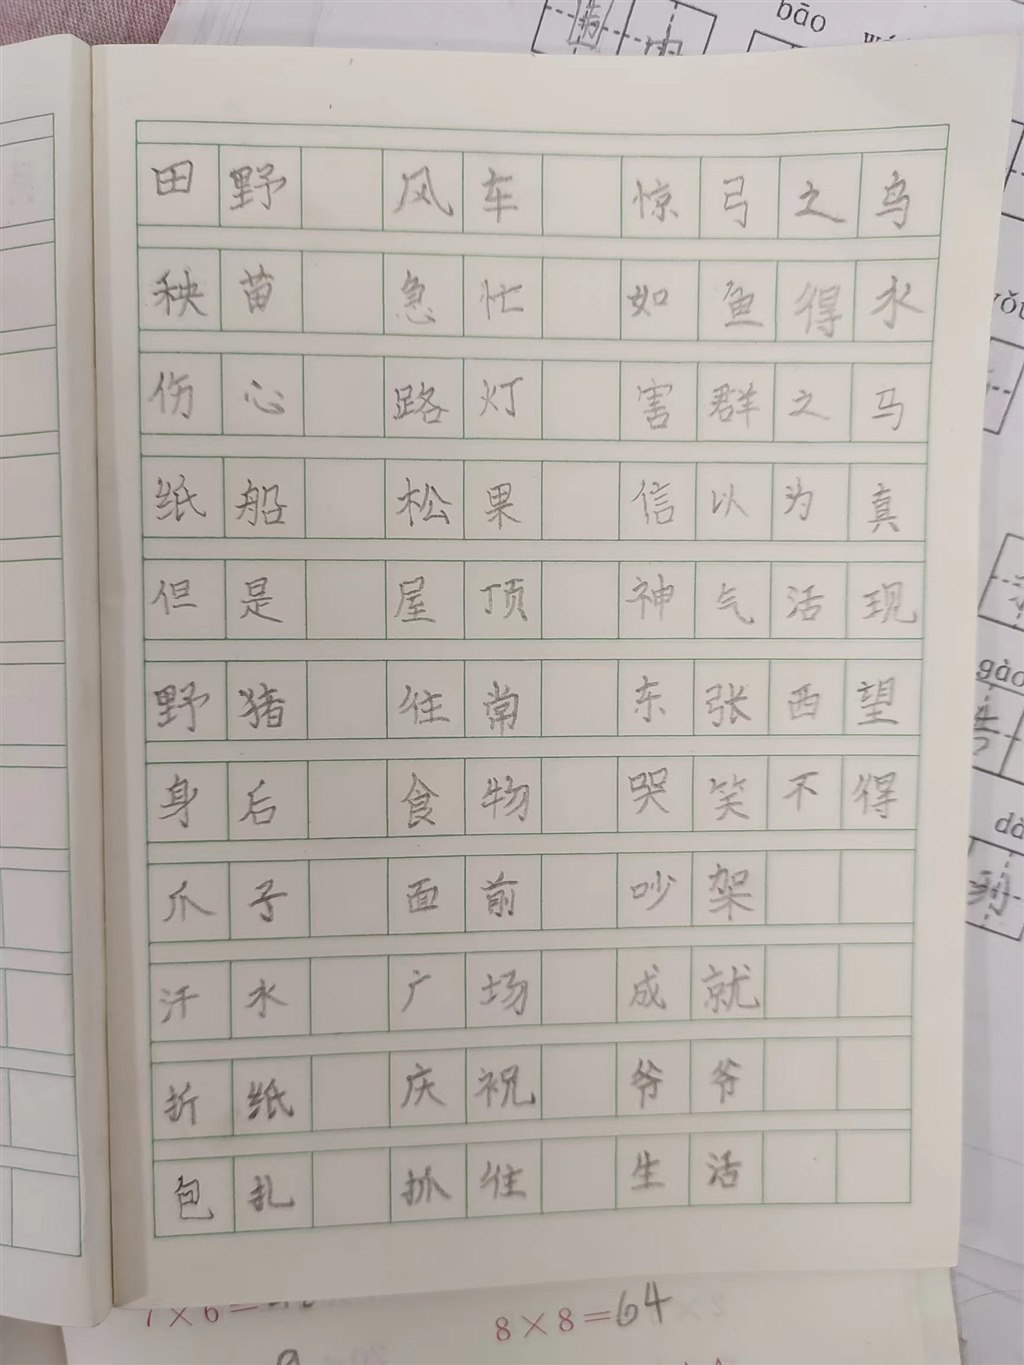 bāo
田野 风车 惊弓之鸟
秧苗 急忙 如鱼得水
伤心 路灯 害群之马
纸船 松果 信以为真
但是 屋顶 神气活现
野猪 往常 东张西望
身后 食物 哭笑不得
爪子 面前 吵架
汗水 广场 成就
折纸 庆祝 爷爷
包扎 抓住 生活
gào
7×6=
8×8=64